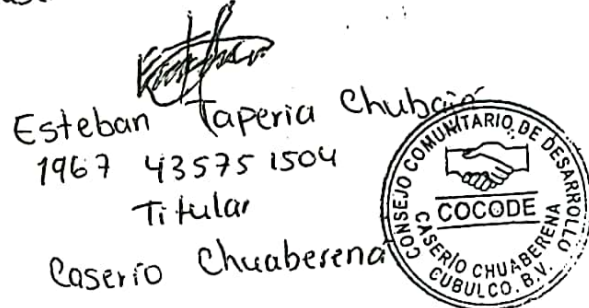 Esteban Taperia Chubajó
1967 43575 1504
Titular
Caserio Chuaberena
CONSEJO COMUNITARIO DE DESARROLLO
COCODE
CASERIO CHUABERENA
CUBULCO. B.V.